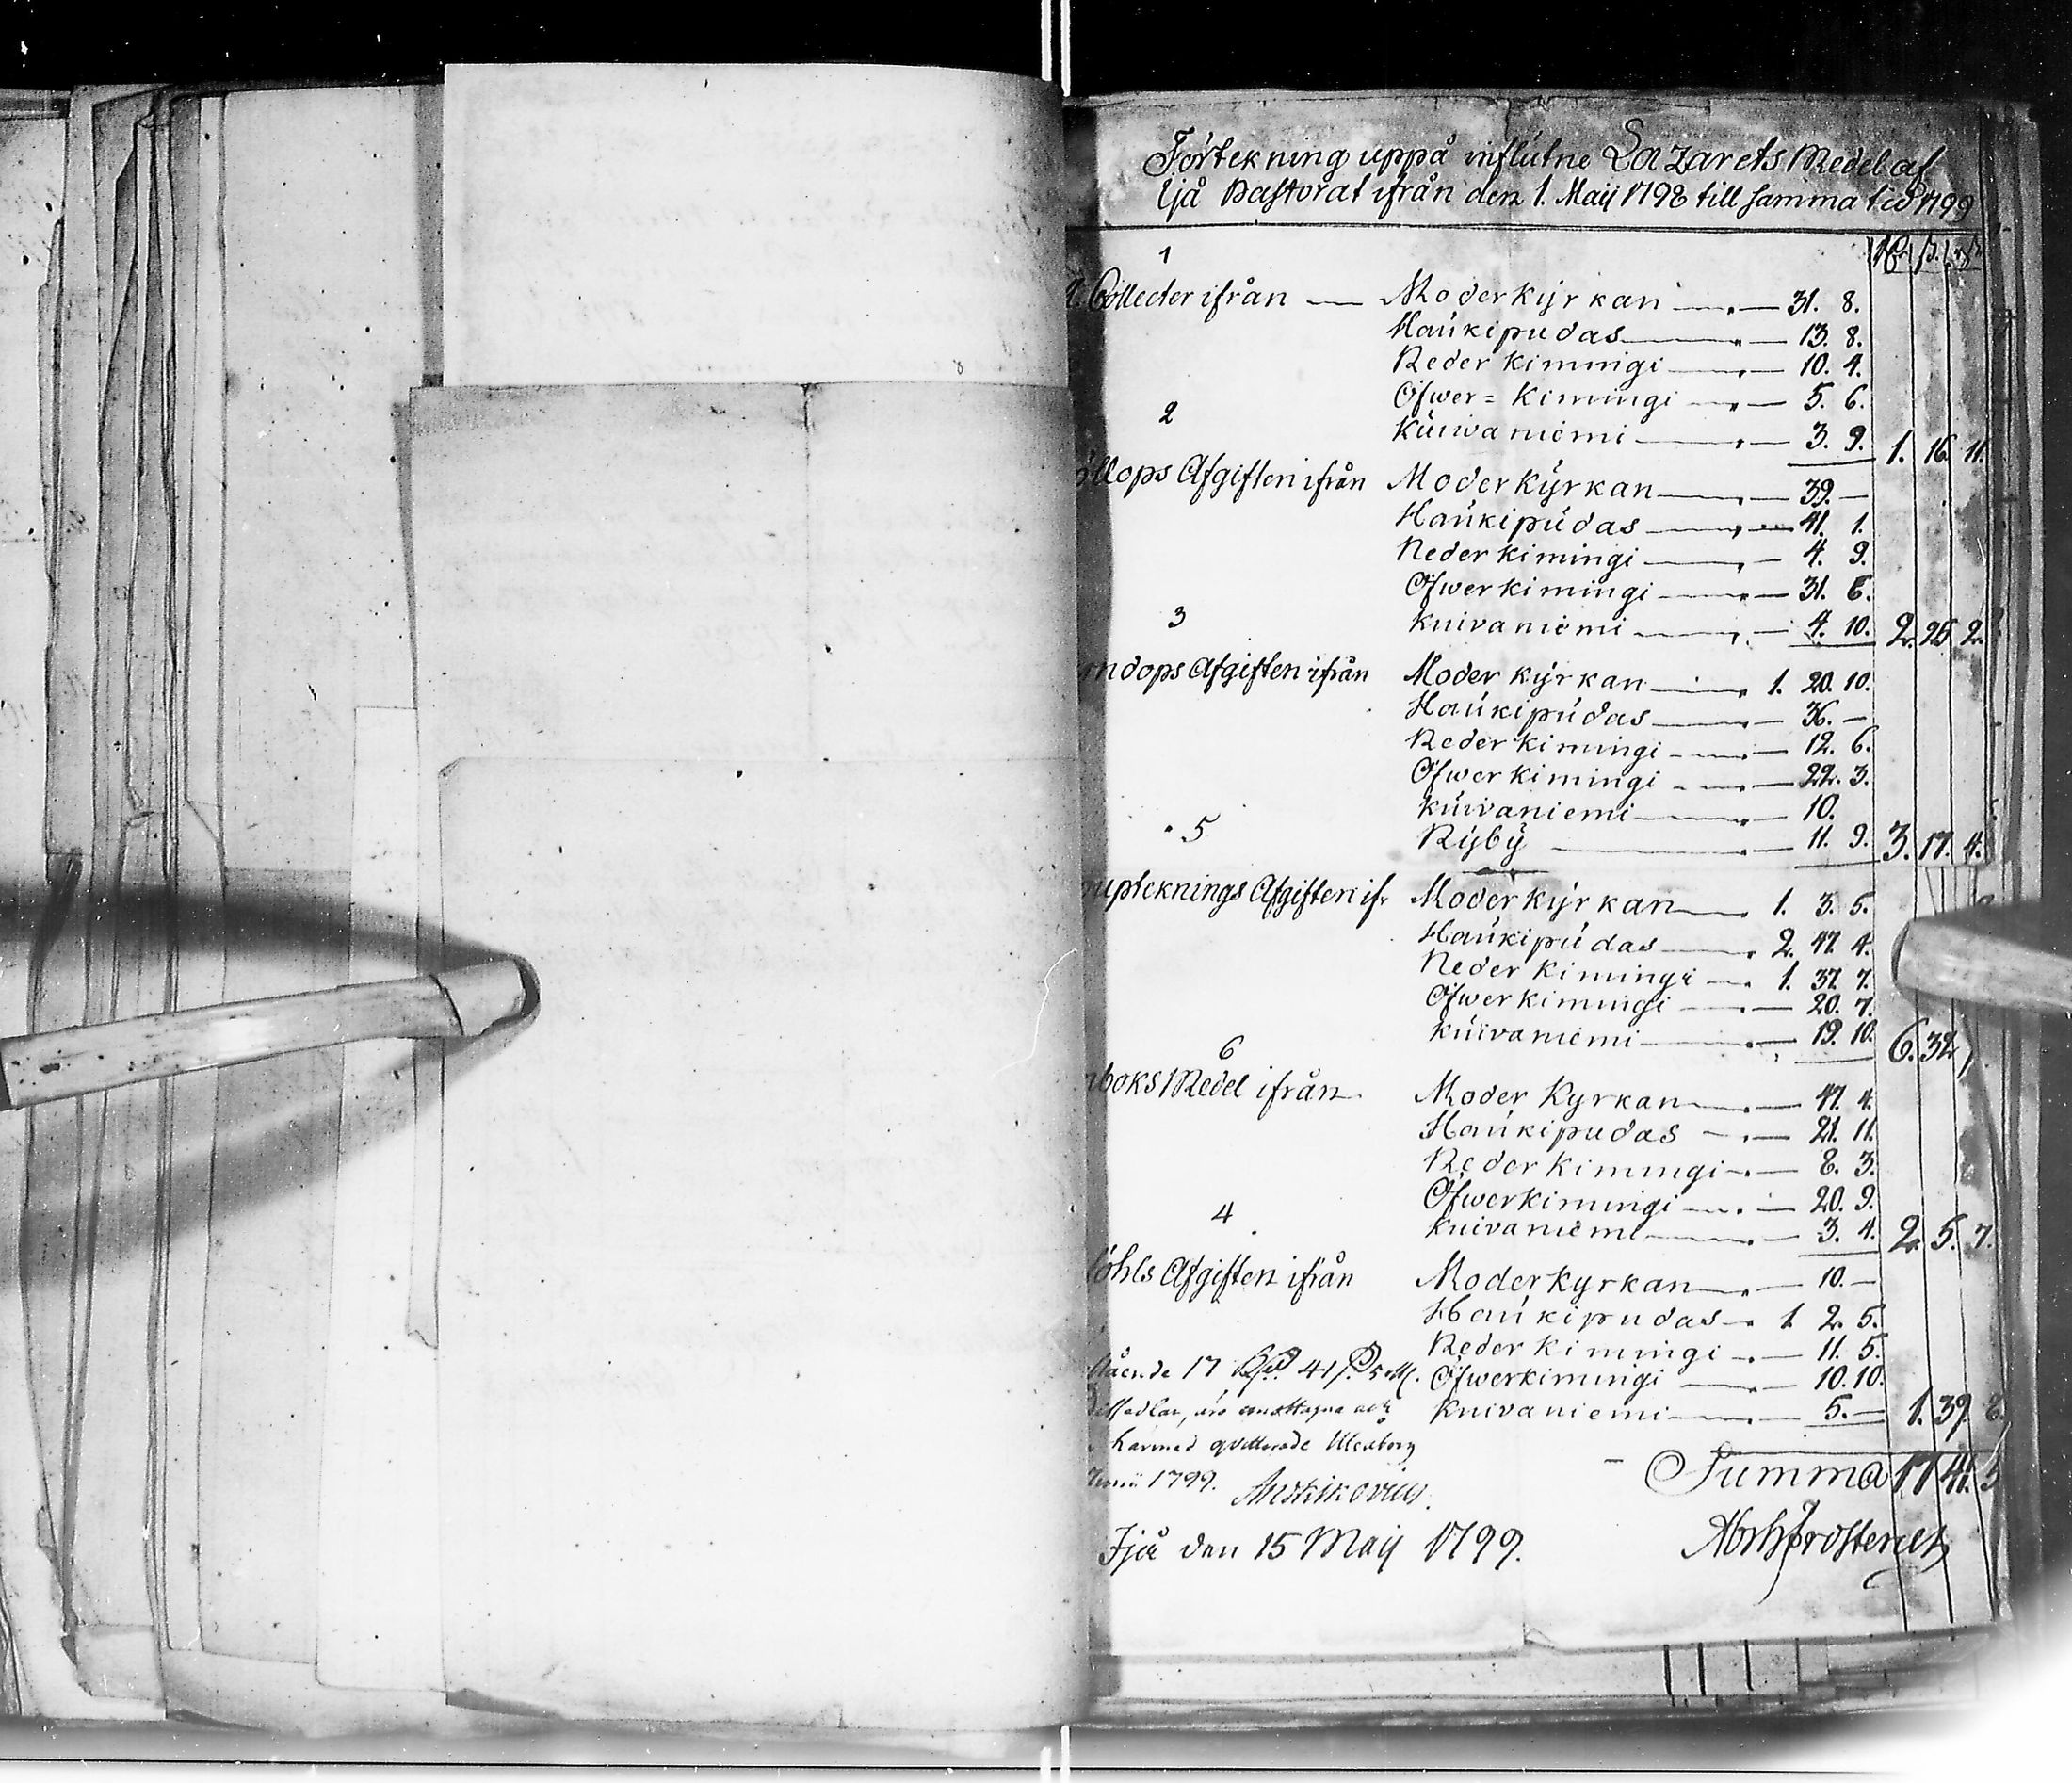 Förtekning uppå influtne Lazarets Medel af
Ijå Pastorat ifrån den 1. Maij 1798 till samma tid 1799
1
Collecter ifrån — Moderkyrkan — 31. 8.
Haukipudas — 13. 8.
Neder Kimingi — 10. 4.
Öfwer= Kimingi — 5. 6.
2
Kuivaniemi — 3. 9. 1. 16. 11.
öllops Afgiften ifrån Moderkyrkan — 39. —
Haukipudas — 41. 1.
Neder Kimingi — 4. 9.
Öfwer Kimingi — 31. 6.
3
Kuivaniemi — 4. 10. 2. 25 2.
ndops Afgiften ifrån Moder kyrkan — 1. 20. 10.
Haukipudas — 36. —
Neder Kimingi — 12. 6.
Öfwer Kimingi — 22. 3.
Kuivaniemi — 10.
5
Ryby — 11. 9. 3. 17. 4.
upteknings Afgiften ifr Moder kyrkan — 1. 3. 5.
Haukipudas — 2. 47. 4.
Neder Kimingi — 1. 37. 7.
Öfwer Kimingi — 20. 7.
Kuivaniemi — 19. 10. 6. 32
6
boks Medel ifrån Moder Kyrkan — 47. 4.
Haukipudas — 21. 11.
Neder Kimingi — 8. 3.
Öfwerkimingi — 20. 9.
4
Kuivaniemi — 3. 4. 2. 5. 7.
öhls Afgiften ifrån Moderkyrkan — 10. —
Haukipudas — 1. 2. 5.
Neder Kimingi — 11. 5.
stående 17 Rd. 41 s. 5 Öfwerkimingi — 10. 10.
Kuivaniemi — 5. — 1. 39. 8.
härmed qvitterade Uleåborg
Junii 1799.
Summa 17 41. 5
Ijå den 15 Maij 1799.